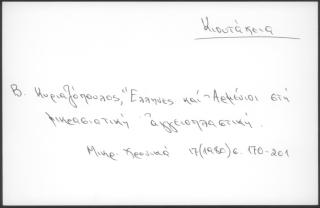 Κιουτάχεια
Β. Κυριαζόπουλος, "Έλληνες καί Ἀρμένιοι στή
μικρασιατική ἀγγειοπλαστική.
Μικρ. Χρονικά 17 (1980) σ. 170-201